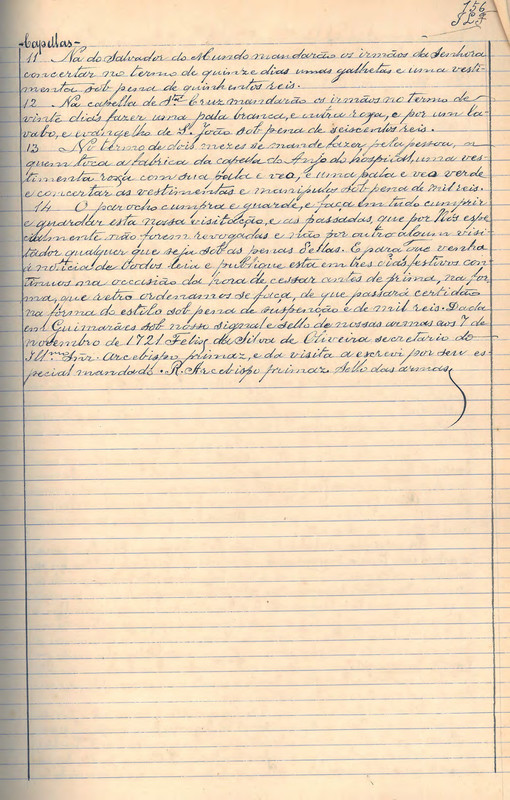 156
-Capellas-
11 Na do Salvador do Mundo mandarão os irmãos da Senhora
concertar no termo de quinze dias umas galhetas e uma vesti-
menta sob pena de quinhentos reis.
12 Na capella de Sta Cruz mandarão os irmãos no termo de
vinte dias fazer uma pala branca, e outra roxa, e por um la-
vabo, e evangelho de S. João sob pena de seiscentos reis.
13 No termo de dois mezes se mande fazer pela pessoa, a
quem toca a fabrica da capella do Anjo do hospital, uma ves-
timenta roxa com sua bolsa e veo, e uma pala e veo verde
e concertar as vestimentas e manipulos sob pena de mil reis.
14 O parocho cumpra e guarde, e faça em tudo cumprir
e guardar esta nossa visitação, e as passadas, que por Nós espe-
cialmente não forem revogadas e não por outro algum visi-
tador qualquer que seja sob as penas Dellas. E para que venha
á noticia de todos leia e publique esta em tres dias festivos con-
tinuos na occasião da hora de cessar antes de prima, na for-
ma, que retro ordenamos se faça, de que passará certidão
na forma do estilo sob pena de suspensão e de mil reis. Dada
em Guimarães sob nosso signal e sello de nossas armas aos 7 de
novembro de 1721 Felix da Silva de Oliveira secretario do
Illmo Snr Arcebispo primaz, e da visita a escrevi por seu es-
pecial mandado. R. Arcebispo primaz Sello das armas